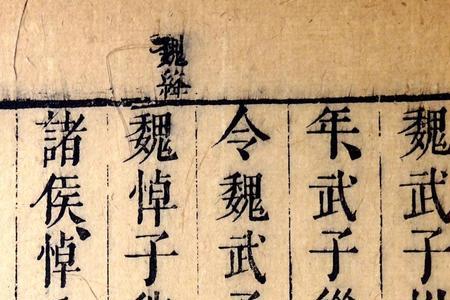 魏武子
年、武子
令魏武
魏絳
魏悼子
諸侯、悼